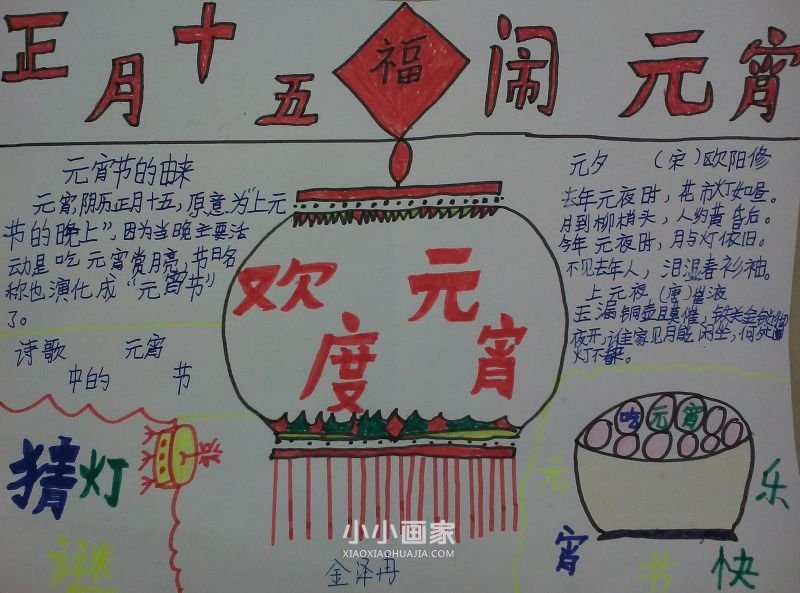 正月十五闹元宵
福
元宵节的由来
元宵，阴历正月十五，原意为“上元
节的晚上”，因为当晚主要活
动是吃元宵赏月亮，节日名
称也演化成“元宵节”
了。
诗歌 元宵
中的 节
猜灯
谜
欢 元
度 宵
元夕 （宋）欧阳修
去年元夜时，花市灯如昼。
月到柳梢头，人约黄昏后。
今年元夜时，月与灯依旧。
不见去年人，泪湿春衫袖。
上元夜（唐）崔液
玉漏铜壶且莫催，铁关金锁
夜开，谁家见月能闲坐，何处
灯不来。
吃元宵
元
宵
节
快
乐
金泽冉
小小画家
XIAOXIAOHUAJIA.COM